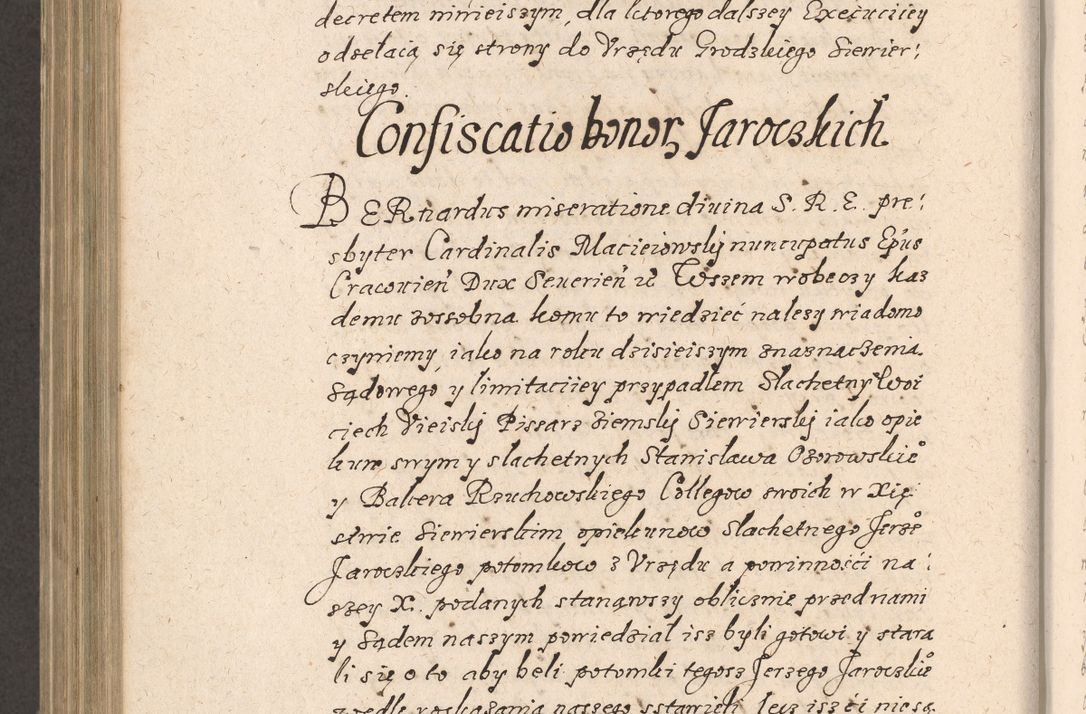 decretem ninieiszym, dla ktorego dalszey Exekuciiey
odsełaią się strony do Vrzędu Grodzkiego Siewier:
skiego.
Confiscatio bonor Jaroczkich
BERnardus miseratione diuina S. R. E. pre:
sbyter Cardinalis Macieiowskij nuncupatus Epus
Cracouien Dux Seuerien w Wszem wobeczy kaz
demu zossobna komu to wiedzieć nalezy wiadomo
czyniemy, iako na roku dzisieiszym znaznaczenia
sądowego, y limitaciiey przypadłem Slachetny Woi
ciech Vieiskij Pissarz ziemskij Siewierskij iako opie
kun swym y slachetnych Stanisława Ozorowskie
y Baltera Rzuchowskiego Collegow swoich w Xię
stwie Siewierskim opiekunow Slachetnego Jerze
Jaroczkiego potomkow z Vrzędu a powinności na:
szey X. podanych stanąwszy oblicznie przed nami
y Sądem naszym powiedział isz byli gotowi y stara
li się o to aby beli potomki tegosz Jerzego Jaroczkie
wedle roskazania naszego sstawieli, lecz isz ći niesą